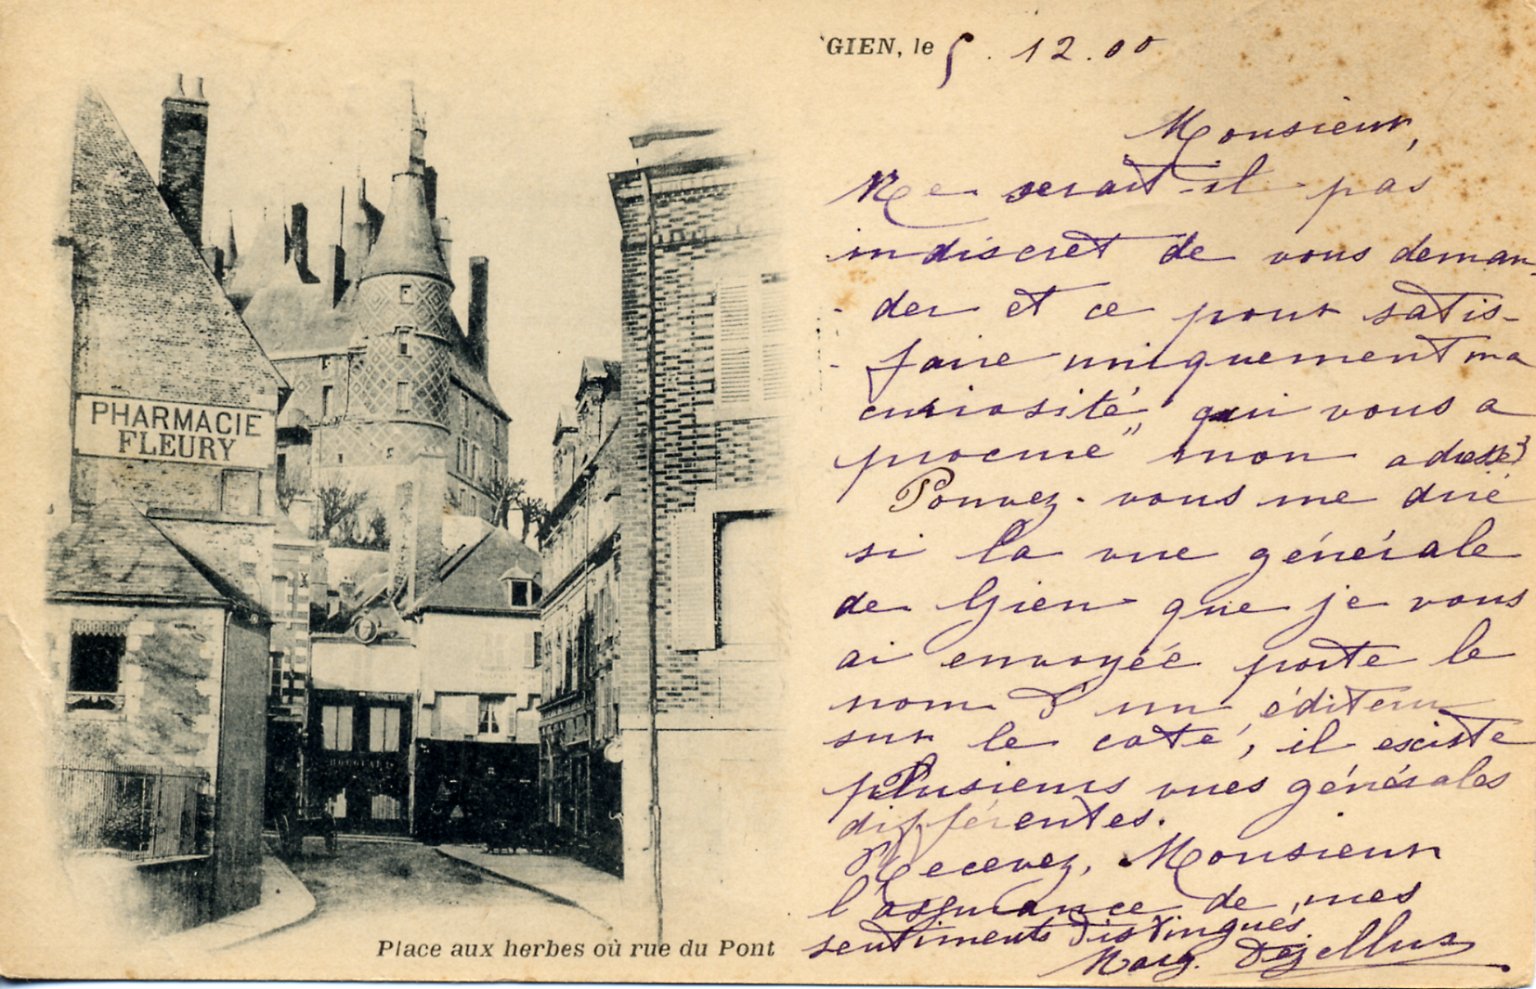 GIEN, le 5.12.00
Monsieur,
Ne serait-il pas
indiscret de vous deman-
der et ce pour satis-
faire uniquement ma
curiosité, qui vous a
procuré" mon adresse?
Pouvez-vous me dire
si la vue générale
de Gien que je vous
ai envoyée porte le
nom d'un éditeur
sur le coté, il existe
plusieurs vues générales
différentes.
Recevez, Monsieur
l'assurance de mes
sentiments distingués.
Marg.
PHARMACIE
FLEURY
Place aux herbes où rue du Pont